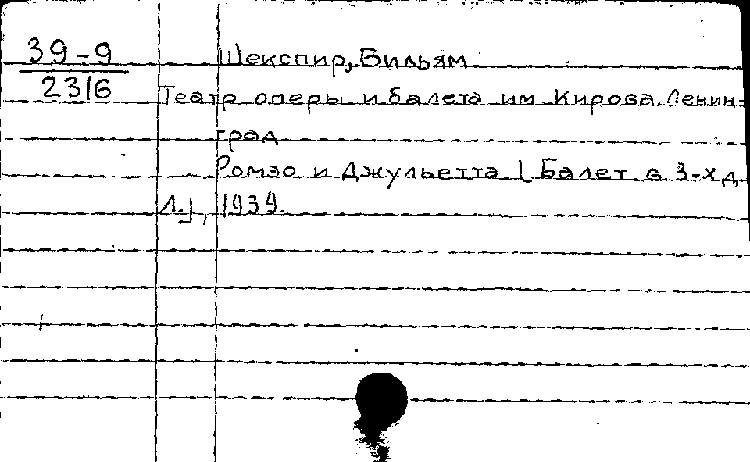 39-9
2316
Шекспир, Вильям
Театр оперы и балета им Кирова. Ленин-
град
Ромэо и Джульетта [Балет в 3-х д.
Л.], 1939.